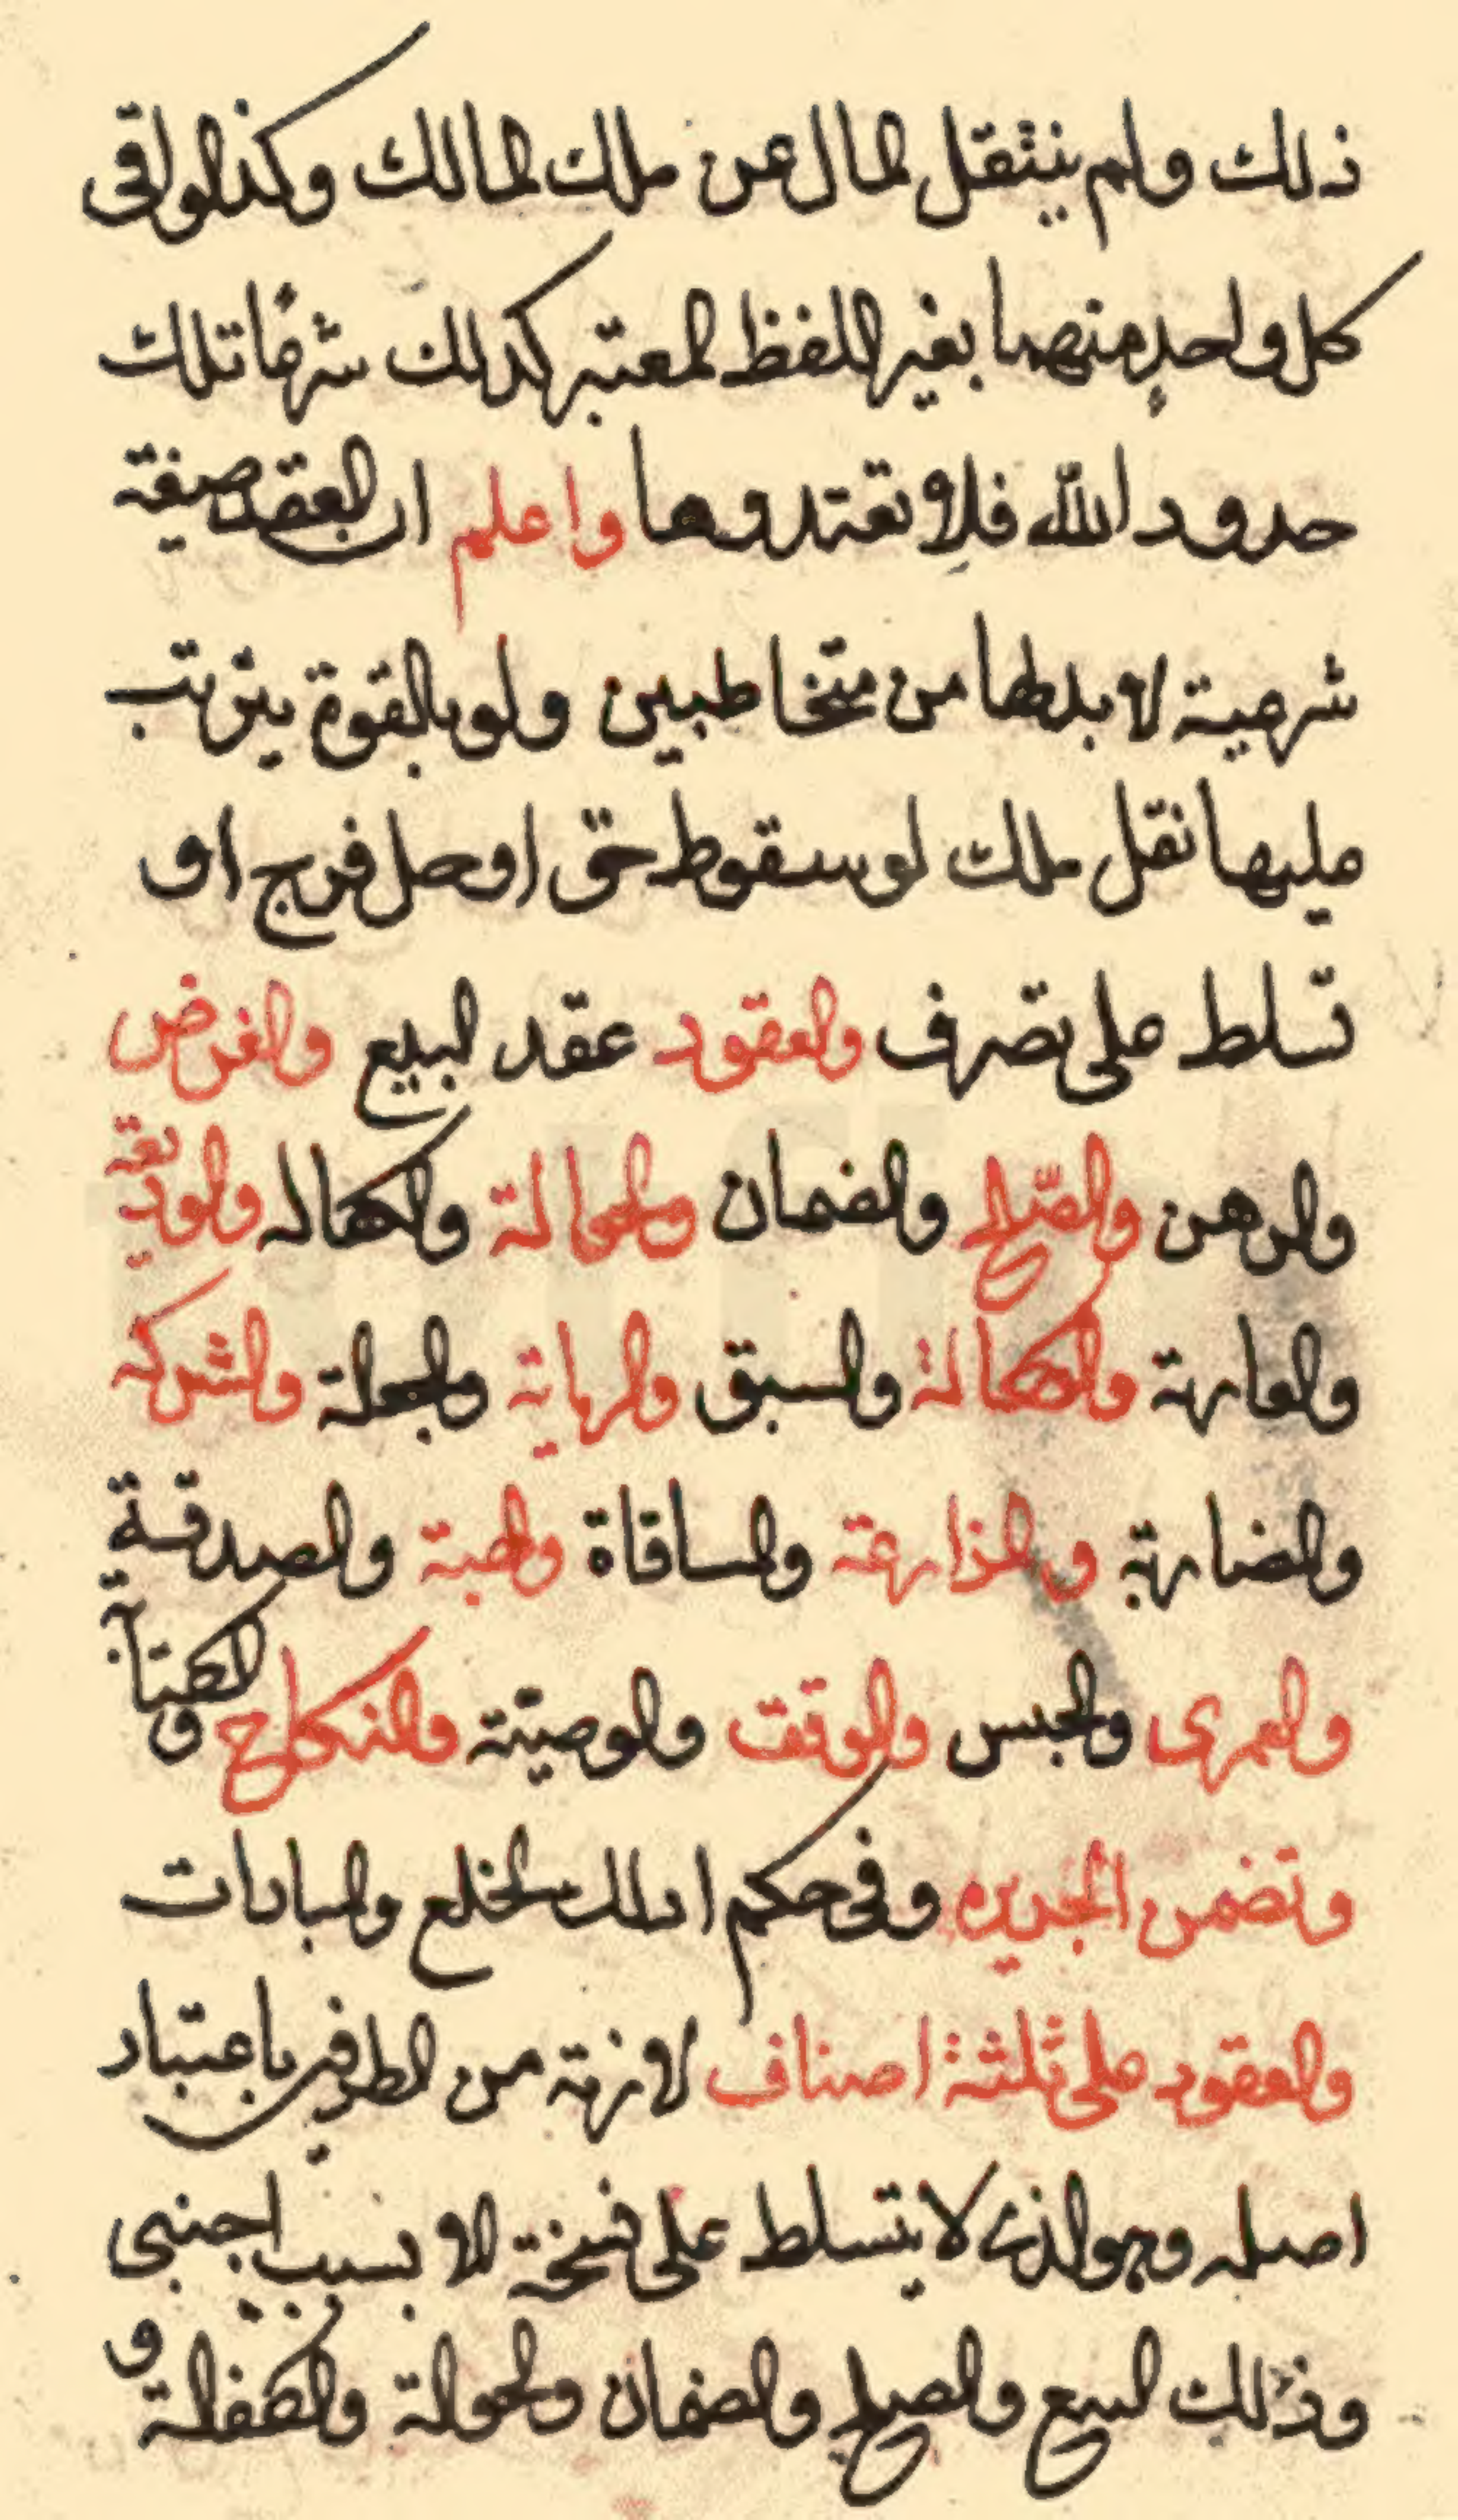 ذلك ولم ينتقل المال عن ملك المالك وكذا لو اتى
كل واحدٍ منهما بغير اللفظ المعتبر كذلك شرعًا تلك
حدود الله فلا تعتدوها واعلم ان العقد صيغة
شرعية لا بد لها من متخاطبين ولو بالقوة يترتب
عليها نقل ملك او سقوط حق او حل فرج او
تسلط على تصرف والعقود عقد البيع والقرض
والرهن والصّلح والضمان والحوالة والكفالة والوديعة
والعارية والوكالة والسبق والرماية والجعالة والشركة
والمضاربة والمزارعة والمساقاة والهبة والصدقة
والعمرى والحبس والوقف والوصيّة والنكاح والكتابة
وتضمن الجريره وفي حكم ذلك الخلع والمبارات
والعقود على ثلثة اصناف لازمة من الطرفين باعتبار
اصله وهو الذي لا يتسلط على فسخة الا بسبب اجنبي
وذلك البيع والصلح والضمان والحوالة والكفالة و